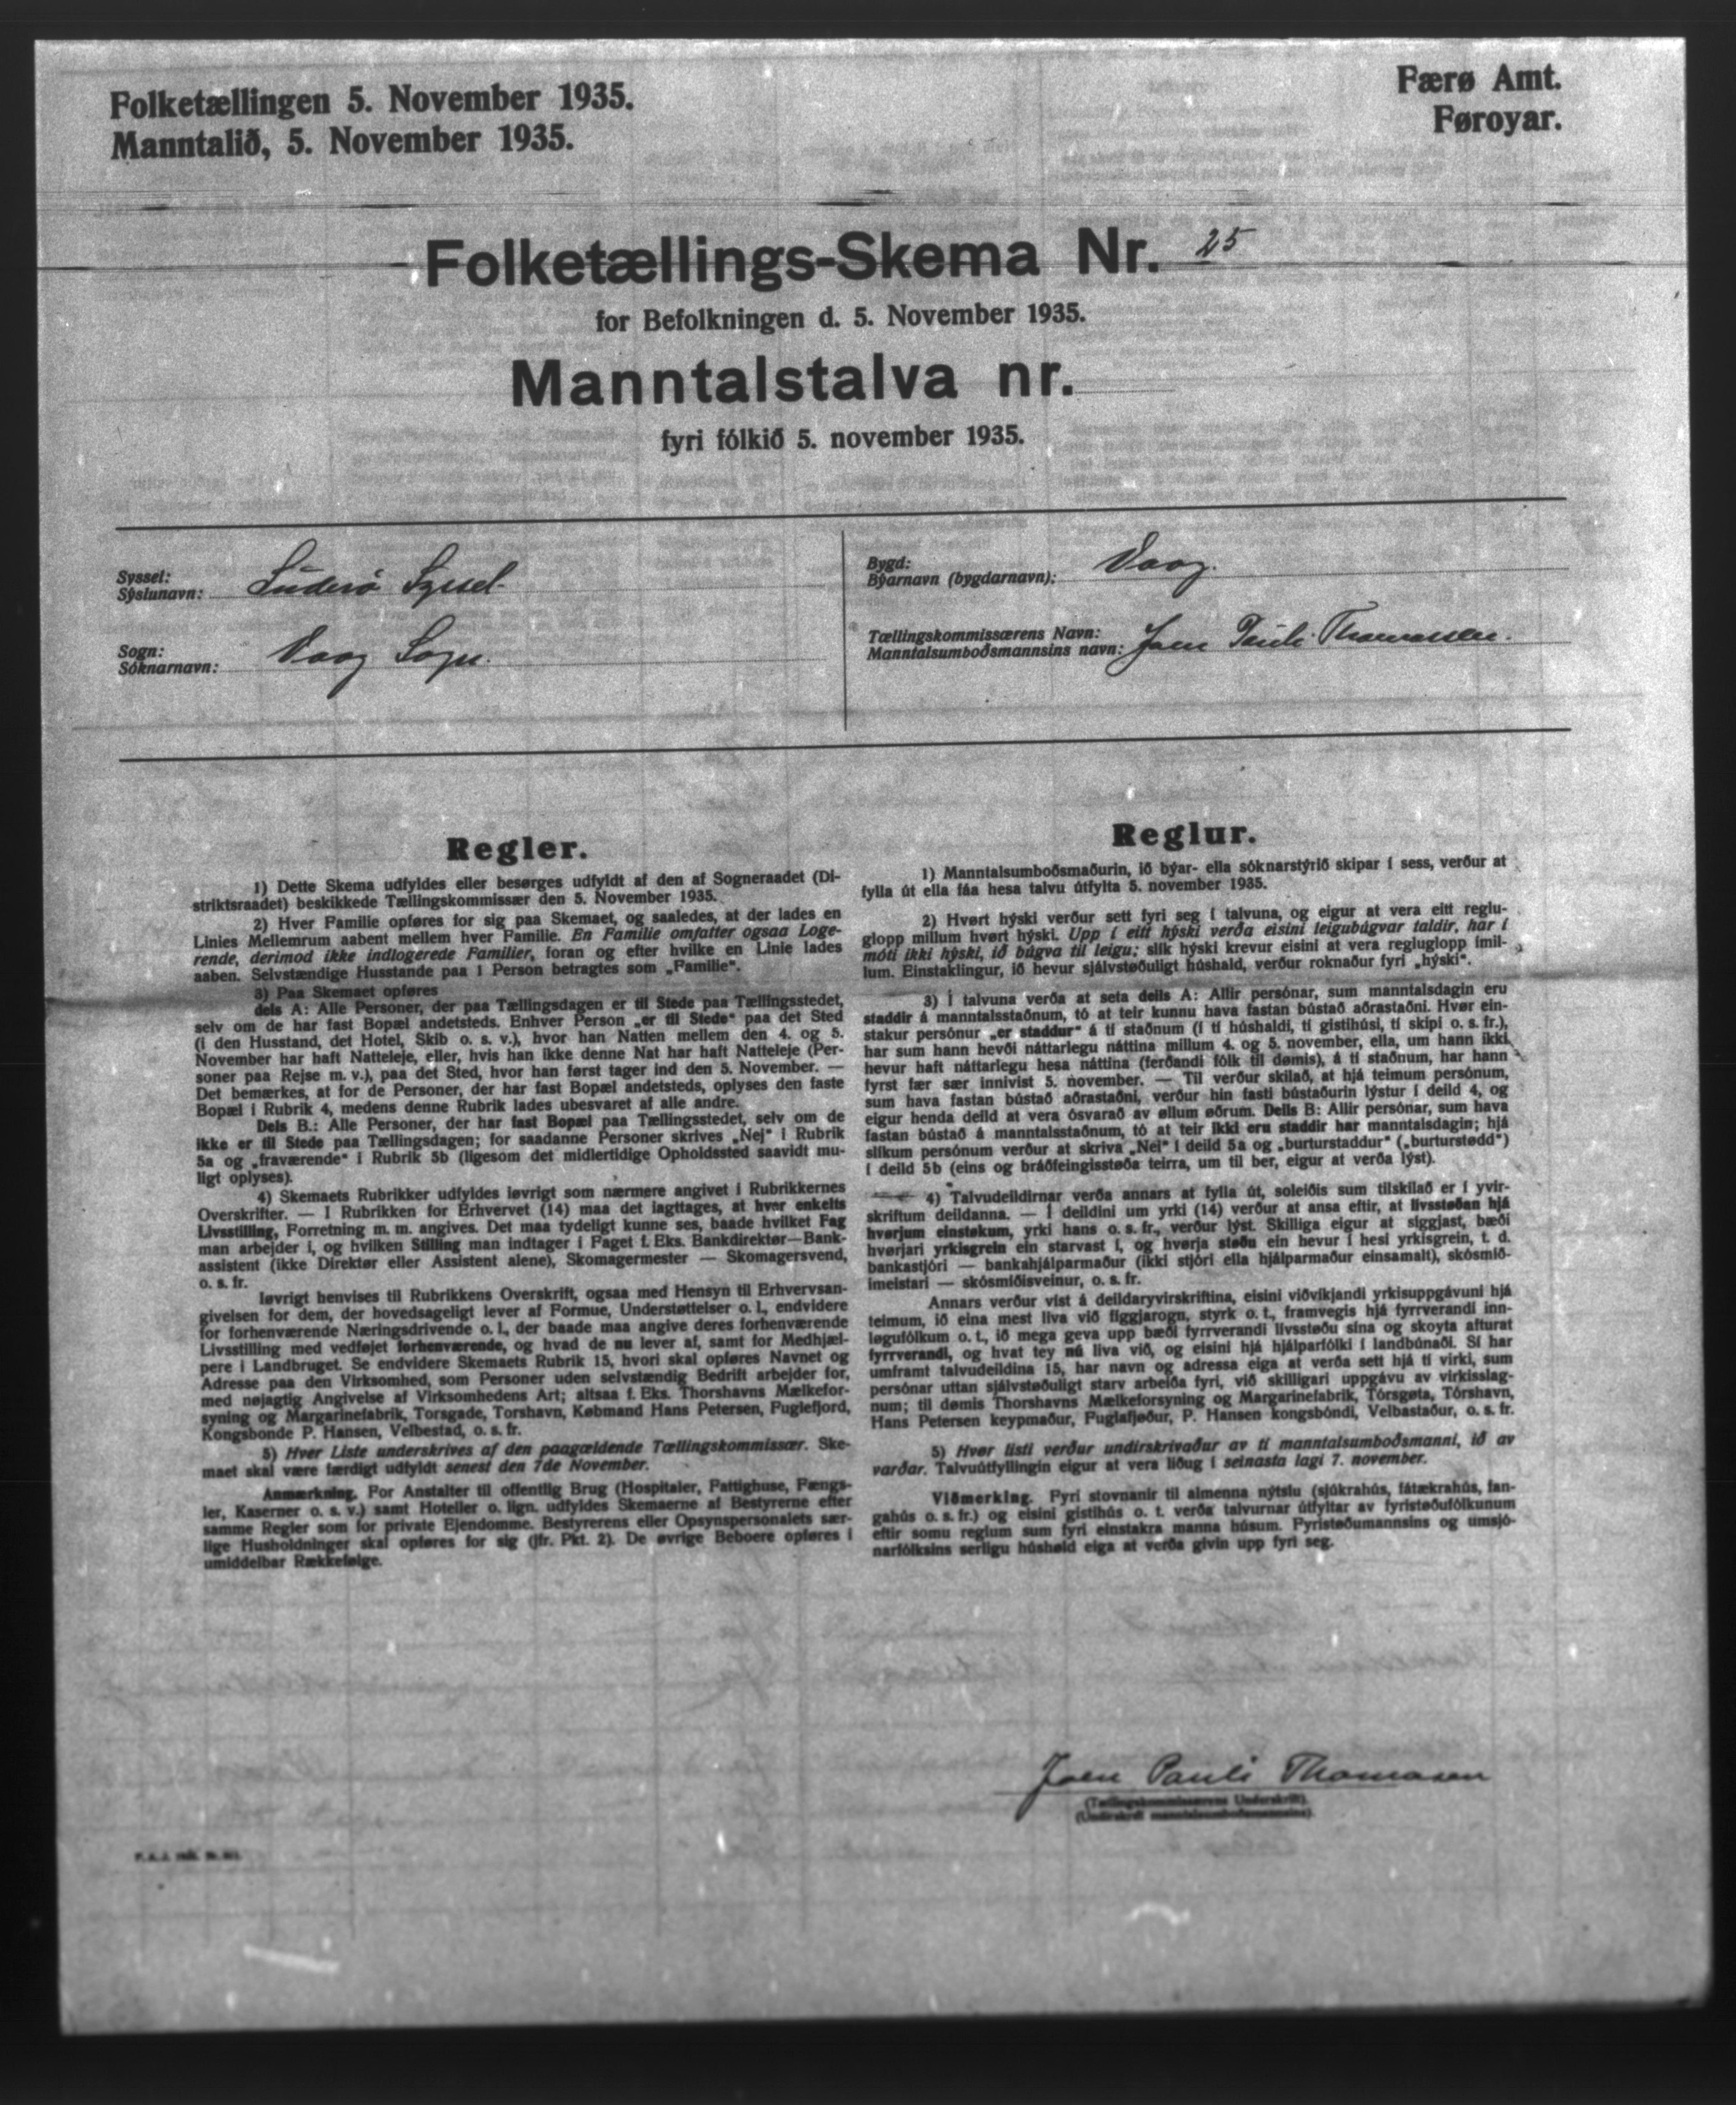 Folketællingen 5. November 1935.
Manntalið, 5. November 1935.
Færø Amt.
Føroyar.
Folketællings-Skema Nr. 25
for Befolkningen d. 5. November 1935.
Manntalstalva nr.
fyri fólkið 5. november 1935.
Syssel:
Sýslunavn: Suderø Syssel.
Sogn:
Sóknarnavn: Vaag Sogn.
Bygd:
Býarnavn (bygdarnavn): Vaag.
Tællingskommissærens Navn:
Manntalsumboðsmannsins navn: Joen Pauli Thomassen.
Regler.
1) Dette Skema udfyldes eller besørges udfyldt af den af Sogneraadet (Di-
striktsraadet) beskikkede Tællingskommissær den 5. November 1935.
2) Hver Familie opføres for sig paa Skemaet, og saaledes, at der lades en
Linies Mellemrum aabent mellem hver Familie. En Familie omfatter ogsaa Loge-
rende, derimod ikke indlogerede Familier, foran og efter hvilke en Linie lades
aaben. Selvstændige Husstande paa 1 Person betragtes som „Familie“.
3) Paa Skemaet opføres
dels A: Alle Personer, der paa Tællingsdagen er til Stede paa Tællingsstedet,
selv om de har fast Bopæl andetsteds. Enhver Person „er til Stede“ paa det Sted
(i den Husstand, det Hotel, Skib o. s. v.), hvor han Natten mellem den 4. og 5.
November har haft Natteleje, eller, hvis han ikke denne Nat har haft Natteleje (Per-
soner paa Rejse m. v.), paa det Sted, hvor han først tager ind den 5. November. —
Det bemærkes, at for de Personer, der har fast Bopæl andetsteds, oplyses den faste
Bopæl i Rubrik 4, medens denne Rubrik lades ubesvaret af alle andre.
Dels B.: Alle Personer, der har fast Bopæl paa Tællingsstedet, selv om de
ikke er til Stede paa Tællingsdagen; for saadanne Personer skrives „Nej“ i Rubrik
5a og „fraværende“ i Rubrik 5b (ligesom det midlertidige Opholdssted saavidt mu-
ligt oplyses).
4) Skemaets Rubrikker udfyldes løvrigt som nærmere angivet i Rubrikkernes
Overskrifter. — I Rubrikken for Erhvervet (14) maa det iagttages, at hver enkelts
Livsstilling, Forretning m. m. angives. Det maa tydeligt kunne ses, baade hvilket Fag
man arbejder i, og hvilken Stilling man indtager i Faget f. Eks. Bankdirektør—Bank-
assistent (ikke Direktør eller Assistent alene), Skomagermester — Skomagersvend,
o. s. fr.
Iøvrigt henvises til Rubrikkens Overskrift, ogsaa med Hensyn til Erhvervsan-
givelsen for dem, der hovedsageligt lever af Formue, Understøttelser o. l., endvidere
for forhenværende Næringsdrivende o. l., der baade maa angive deres forhenværende
Livsstilling med vedføjet forhenværende, og hvad de nu lever af, samt for Medhjæl-
pere i Landbruget. Se endvidere Skemaets Rubrik 15, hvori skal opføres Navnet og
Adresse paa den Virksomhed, som Personer uden selvstændig Bedrift arbejder for,
med nøjagtig Angivelse af Virksomhedens Art; altsaa f. Eks. Thorshavns Mælkefor-
syning og Margarinefabrik, Torsgade, Torshavn, Købmand Hans Petersen, Fuglefjord,
Kongsbonde P. Hansen, Velbestad, o. s. fr.
5) Hver Liste underskrives af den paagældende Tællingskommissær. Ske-
maet skal være færdigt udfyldt senest den 7de November.
Anmærkning. For Anstalter til offentlig Brug (Hospitaler, Fattighuse, Fængs-
ler, Kaserner o. s. v.) samt Hoteller o. lign. udfyldes Skemaerne af Bestyrerne efter
samme Regler som for private Ejendomme. Bestyrerens eller Opsynspersonalets sær-
lige Husholdninger skal opføres for sig (jfr. Pkt. 2). De øvrige Beboere opføres i
umiddelbar Rækkefølge.
Reglur.
1) Manntalsumboðsmaðurin, ið býar- ella sóknarstýrið skipar í sess, verður at
fylla út ella fáa hesa talvu útfylta 5. november 1935.
2) Hvørt hýski verður sett fyri seg í talvuna, og eigur at vera eitt reglu-
glopp millum hvørt hýski. Upp í eitt hýski verða eisini leigubúgvar taldir, har í
móti ikki hýski, ið búgva til leigu; slík hýski krevur eisini at vera regluglopp ímil-
lum. Einstaklingur, ið hevur sjálvstøðuligt húshald, verður roknaður fyri „hýski“.
3) Í talvuna verða at seta dells A: Allir persónar, sum manntalsdagin eru
staddir á manntalsstaðnum, tó at teir kunnu hava fastan bústað aðrastaðni. Hvør ein-
stakur persónur „er staddur“ á tí staðnum (í tí húshaldi, tí gistihúsi, tí skipi o. s. fr.),
har sum hann hevði náttarlegu náttina millum 4. og 5. november, ella, um hann ikki
hevur haft náttarlegu hesa náttina (ferðandi fólk til dømis), á tí staðnum, har hann
fyrst fær sær innivist 5. november. — Til verður skilað, at hjá teimum persónum,
sum hava fastan bústað aðrastaðni, verður hin fasti bústaðurin lýstur í deild 4, og
eigur henda deild at vera ósvarað av øllum øðrum. Dells B: Allir persónar, sum hava
fastan bústað á manntalsstaðnum, tó at teir ikki eru staddir har manntalsdagin; hjá
slíkum persónum verður at skriva „Nei“ í deild 5a og „burturstaddur“ („burturstødd“)
í deild 5b (eins og bráðfeingisstøða teirra, um til ber, eigur at verða lýst).
4) Talvudeildirnar verða annars at fylla út, soleiðis sum tilskilað er í yvir-
skriftum deildanna. — Í deildini um yrki (14) verður at ansa eftir, at livsstøðan hjá
hvørjum einstøkum, yrki hans o. s. fr., verður lýst. Skilliga eigur at siggjast, bæði
hvørjari yrkisgrein ein starvast í, og hvørja støðu ein hevur í hesi yrkisgrein, t. d.
bankastjóri — bankahjálparmaður (ikki stjóri ella hjálparmaður einsamalt), skósmið-
imeistari — skósmiðisveinur, o. s. fr.
Annars verður víst á deildaryvirskriftina, eisini viðvíkjandi yrkisuppgávuni hjá
teimum, ið eina mest liva við figgjarogn, styrk o. t., framvegis hjá fyrrverandi inn-
løgufólkum o. t., ið mega geva upp bæði fyrrverandi livsstøðu sína og skoyta afturat
fyrrverandi, og hvat tey nú liva við, og eisini hjá hjálparfólki í landbúnaði. Sí har
umframt talvudeildina 15, har navn og adressa eiga at verða sett hjá tí virki, sum
persónar uttan sjálvstøðuligt starv arbeiða fyri, við skilligari uppgávu av virkisslag-
num; til dømis Thorshavns Mælkeforsyning og Margarinefabrik, Tórsgøta, Tórshavn,
Hans Petersen keypmaður, Fuglafjøður, P. Hansen kongsbóndi, Velbastaður, o. s. fr.
5) Hvør listi verður undirskrivaður av tí manntalsumboðsmanni, ið av
varðar. Talvuútfyllingin eigur at vera liðug í seinasta lagi 7. november.
Viðmerking. Fyri stovnanir til almenna nýtslu (sjúkrahús, fátækrahús, fan-
gahús o. s. fr.) og eisini gistihús o. t. verða talvurnar útfyltar av fyristøðufólkunum
eftir somu reglum sum fyri einstakra manna húsum. Fyristøðumannsins og umsjó-
narfólksins serligu húshøld eiga at verða givin upp fyri seg.
Joen Pauli Thomassen
(Tællingskommissærens Underskrift).
(Undirskrift manntalsumboðsmannsins).